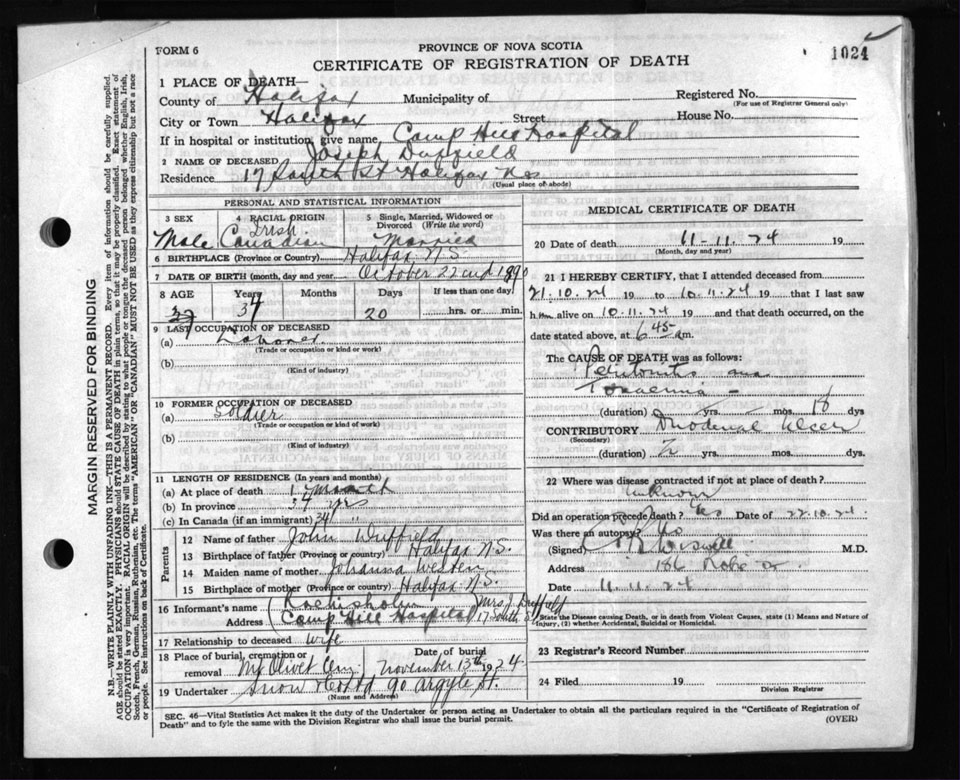 FORM 6
PROVINCE OF NOVA SCOTIA
1024
CERTIFICATE OF REGISTRATION OF DEATH
1 PLACE OF DEATH—
County of Halifax Municipality of Registered No.
(For use of Registrar General only)
City or Town Halifax Street House No.
If in hospital or institution, give name Camp Hill Hospital
2 NAME OF DECEASED Joseph Duffield
Residence 17 South St Halifax N.S
(Usual place of abode)
PERSONAL AND STATISTICAL INFORMATION
3 SEX 4 RACIAL ORIGIN 5 Single, Married, Widowed or Divorced (Write the word)
Male Irish Canadian Married
6 BIRTHPLACE (Province or Country) Halifax N.S.
7 DATE OF BIRTH (month, day and year October 22nd 1890
8 AGE Years Months Days If less than one day
34 20 hrs. or min.
9 LAST OCCUPATION OF DECEASED
(a) Laborer
(Trade or occupation or kind or work)
(b)
(Kind of industry)
10 FORMER OCCUPATION OF DECEASED
(a) Soldier
(Trade or occupation or kind of work)
(b)
(Kind of industry)
11 LENGTH OF RESIDENCE (In years and months)
(a) At place of death 1 month
(b) In province 34 yrs
(c) In Canada (if an immigrant) 34 "
Parents
12 Name of father John Duffield
13 Birthplace of father (Province or country) Halifax N.S.
14 Maiden name of mother Johanna
15 Birthplace of mother (Province or country) Halifax N.S.
16 Informant's name Mrs J. Duffield
Address Camp Hill Hospital 17 South St
17 Relationship to deceased wife
18 Place of burial, cremation or removal Mt Olivet Cem. Date of burial November 13th 1924
19 Undertaker Snow & Co Ltd 90 Argyle St.
(Name and Address)
MEDICAL CERTIFICATE OF DEATH
20 Date of death 11-11-24 19
(Month, day and year)
21 I HEREBY CERTIFY, that I attended deceased from
21.10.24 19 to 10.11.24 19 that I last saw
him alive on 10.11.24 19 and that death occurred, on
date stated above, at 6 45 am.
The CAUSE OF DEATH was as follows:
Peritonitis and
Toxaemia
(duration) yrs. mos. 18 dys
CONTRIBUTORY Duodenal Ulcer
(Secondary)
(duration) 2 yrs. mos. dys.
22 Where was disease contracted if not at place of death?
Unknown
Did an operation precede death? Yes Date of 22.10.24
Was there an autopsy?
(Signed) Wiswell M.D.
Address 186 Robie St
Date 11.11.24
State the Disease causing Death, or in death from Violent Causes, state (1) Means and Nature of Injury, (2) whether Accidental, Suicidal or Homicidal.
23 Registrar's Record Number
24 Filed 19
Division Registrar
SEC. 46—Vital Statistics Act makes it the duty of the Undertaker or person acting as Undertaker to obtain all the particulars required in the "Certificate of Registration of
Death" and to fyle the same with the Division Registrar who shall issue the burial permit.
(OVER)
MARGIN RESERVED FOR BINDING
N.B.—WRITE PLAINLY WITH UNFADING INK—THIS IS A PERMANENT RECORD. Every item of information should be carefully supplied.
AGE should be stated EXACTLY. PHYSICIANS should STATE CAUSE OF DEATH in plain terms, so that it may be properly classified. Exact statement of
OCCUPATION is very important. RACIAL ORIGIN will be described by stating to what people or tongue the deceased person belonged whether English, Irish,
Scotch, French, German, Russian, Ruthenian, etc. The terms "AMERICAN" OR "CANADIAN" MUST NOT BE USED as they express citizenship but not a race
or people. See instructions on back of Certificate.